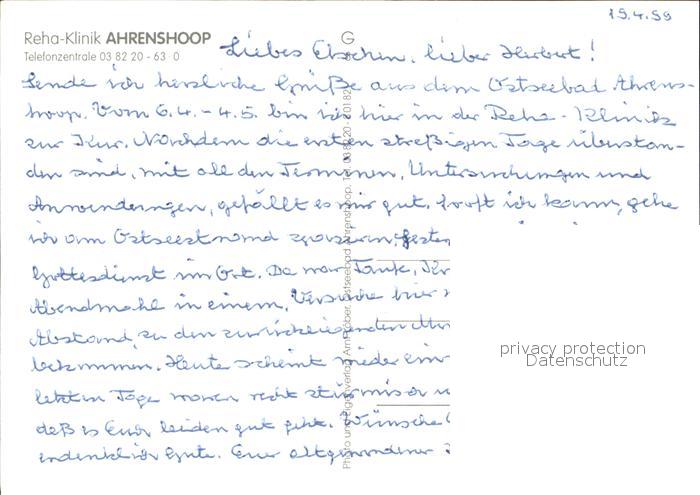 19.4.99
Reha-Klinik AHRENSHOOP
Telefonzentrale 03 82 20 - 63 0
Liebes Elschen, lieber Herbert!
Sende ich herzliche Grüße aus dem Ostseebad Ahrens-
hoop. Vom 6.4. - 4.5. bin ich hier in der Reha-Klinik
zur Kur. Nachdem die ersten streßigen Tage überstan-
den sind, mit all den Terminen, Untersuchungen und
Anwendungen, gefällt es mir gut. So oft ich kann, gehe
ich am Ostseestrand spazieren.
Gottesdienst im Ort. Da war Taufe,
Abendmahl in einem. Versuche hier
Abstand zu den zurückliegenden
bekommen. Heute scheint wieder ein
letzten Tage waren recht stürmisch u
daß es Euch beiden gut geht. Wünsche
Gute. Eure
G
privacy protection
Datenschutz